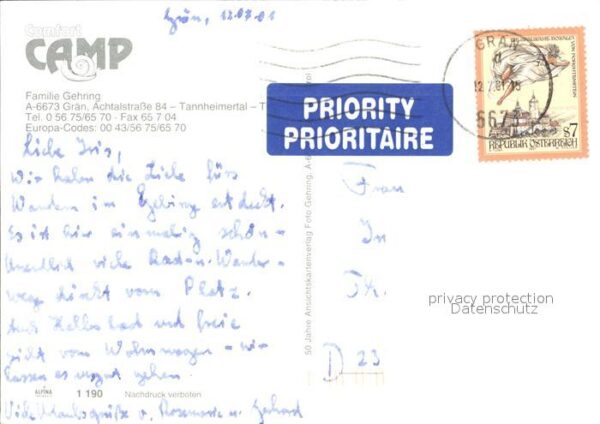 Grän, 12.07.01
Comfort
CAMP
Familie Gehring
A-6673 Grän, Achtalstraße 84 – Tannheimertal – T
Tel. 0 56 75/65 70 · Fax 65 7 04
Europa-Codes: 00 43/56 75/65 70
Liebe Iris,
wir haben die Liebe fürs
Wandern im Gebirge entdeckt.
Es ist hier einmalig schön -
Unendlich viele Rad- u. Wander-
wege direkt vom Platz.
und Hallenbad und freie
Sicht vom Wohnwagen - wir
lassen es uns gut gehen.
Urlaubsgrüße v. Rosemarie u. Gerhard
ALPINA
1 190 Nachdruck verboten
50 Jahre Ansichtskartenverlag Foto Gehring, A-6
PRIORITY
PRIORITAIRE
GRÄN
12.7.01
6673
S7
REPUBLIK ÖSTERREICH
Frau
D 23
privacy protection
Datenschutz